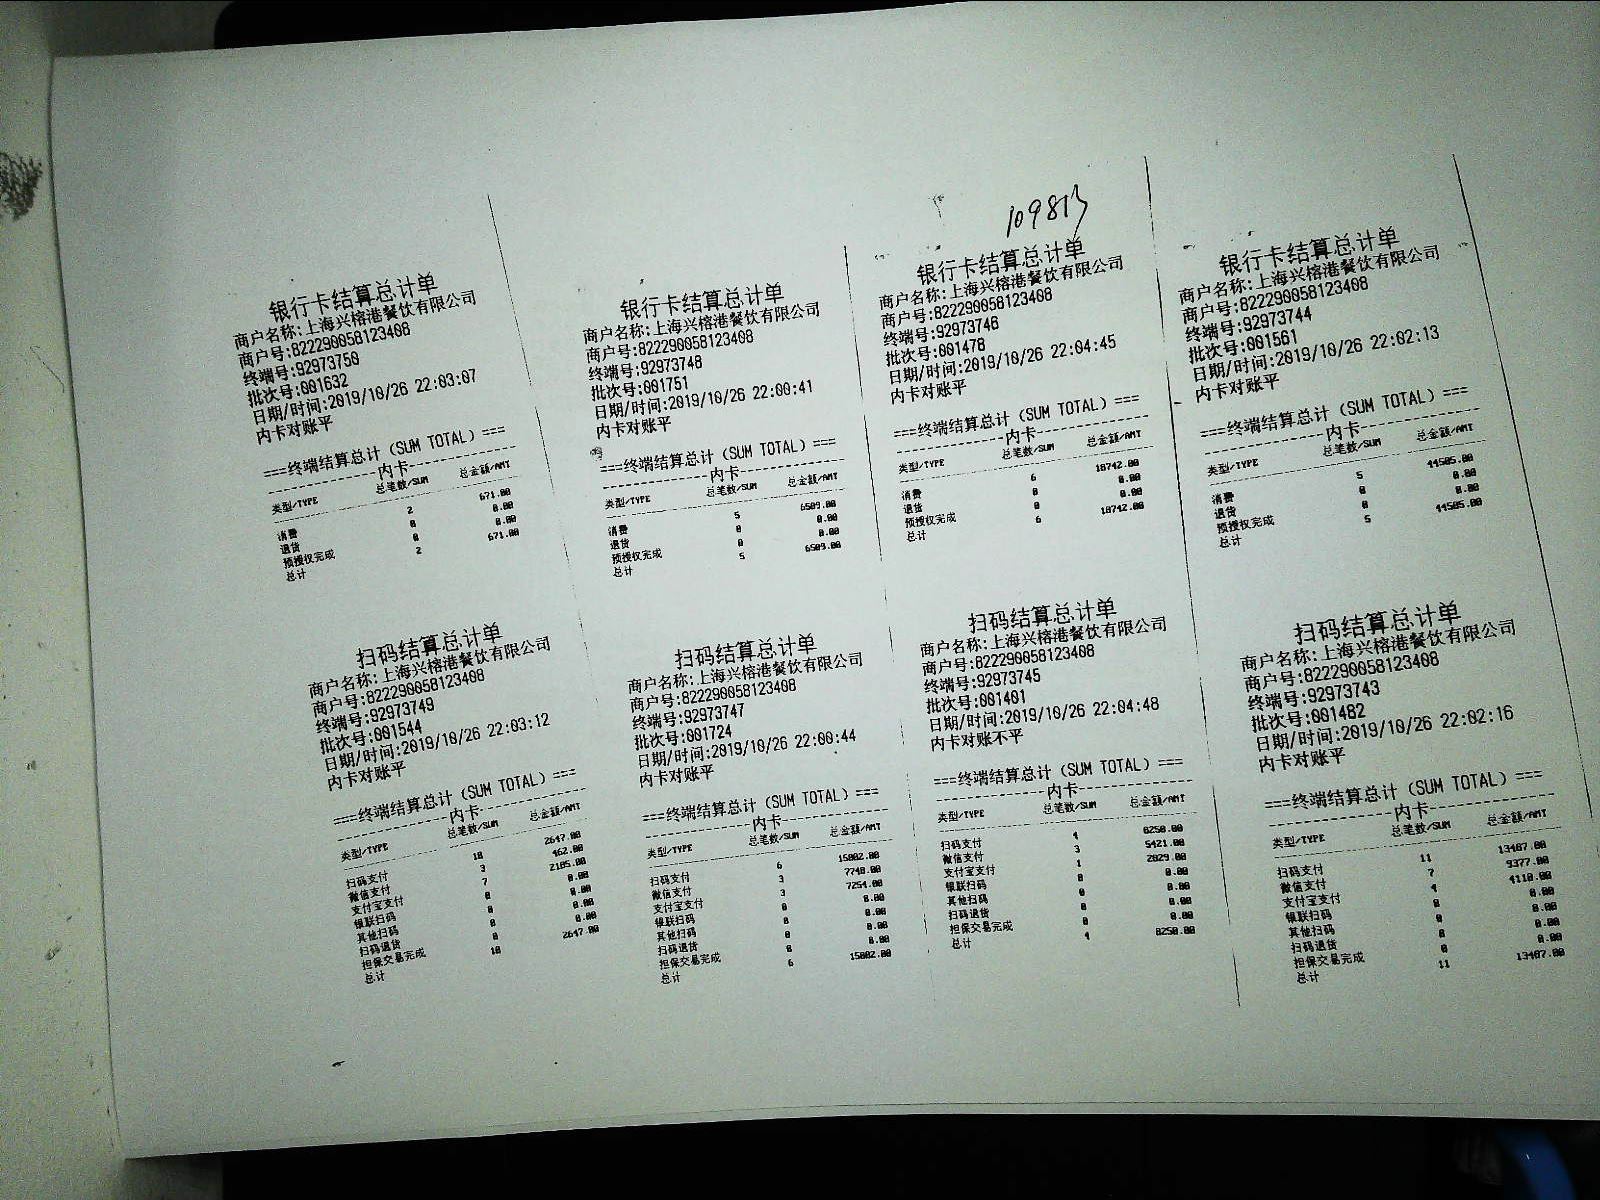 109813
银行卡结算总计单
商户名称:上海兴榕港餐饮有限公司
商户号:822290058123408
终端号:92973750
批次号:001632
日期/时间:2019/10/26 22:03:07
内卡对账平
===终端结算总计(SUM TOTAL)===
----------内卡----------
类型/TYPE 总笔数/SUM 总金额/AMT
消费 2 671.00
退货 0 0.00
预授权完成 0 0.00
总计 2 671.00
银行卡结算总计单
商户名称:上海兴榕港餐饮有限公司
商户号:822290058123408
终端号:92973748
批次号:001751
日期/时间:2019/10/26 22:00:41
内卡对账平
===终端结算总计(SUM TOTAL)===
----------内卡----------
类型/TYPE 总笔数/SUM 总金额/AMT
消费 5 6509.00
退货 0 0.00
预授权完成 0 0.00
总计 5 6509.00
银行卡结算总计单
商户名称:上海兴榕港餐饮有限公司
商户号:822290058123408
终端号:92973746
批次号:001478
日期/时间:2019/10/26 22:04:45
内卡对账平
===终端结算总计(SUM TOTAL)===
----------内卡----------
类型/TYPE 总笔数/SUM 总金额/AMT
消费 6 18742.00
退货 0 0.00
预授权完成 0 0.00
总计 6 18742.00
银行卡结算总计单
商户名称:上海兴榕港餐饮有限公司
商户号:822290058123408
终端号:92973744
批次号:001561
日期/时间:2019/10/26 22:02:13
内卡对账平
===终端结算总计(SUM TOTAL)===
----------内卡----------
类型/TYPE 总笔数/SUM 总金额/AMT
消费 5 44505.00
退货 0 0.00
预授权完成 0 0.00
总计 5 44505.00
扫码结算总计单
商户名称:上海兴榕港餐饮有限公司
商户号:822290058123408
终端号:92973749
批次号:001544
日期/时间:2019/10/26 22:03:12
内卡对账平
===终端结算总计(SUM TOTAL)===
----------内卡----------
类型/TYPE 总笔数/SUM 总金额/AMT
扫码支付 10 2647.00
微信支付 3 462.00
支付宝支付 7 2185.00
银联扫码 0 0.00
其他扫码 0 0.00
扫码退货 0 0.00
担保交易完成 0 0.00
总计 10 2647.00
扫码结算总计单
商户名称:上海兴榕港餐饮有限公司
商户号:822290058123408
终端号:92973747
批次号:001724
日期/时间:2019/10/26 22:00:44
内卡对账平
===终端结算总计(SUM TOTAL)===
----------内卡----------
类型/TYPE 总笔数/SUM 总金额/AMT
扫码支付 6 15002.00
微信支付 3 7748.00
支付宝支付 3 7254.00
银联扫码 0 0.00
其他扫码 0 0.00
扫码退货 0 0.00
担保交易完成 0 0.00
总计 6 15002.00
扫码结算总计单
商户名称:上海兴榕港餐饮有限公司
商户号:822290058123408
终端号:92973745
批次号:001401
日期/时间:2019/10/26 22:04:48
内卡对账不平
===终端结算总计(SUM TOTAL)===
----------内卡----------
类型/TYPE 总笔数/SUM 总金额/AMT
扫码支付 4 8250.00
微信支付 3 5421.00
支付宝支付 1 2829.00
银联扫码 0 0.00
其他扫码 0 0.00
扫码退货 0 0.00
担保交易完成 0 0.00
总计 4 8250.00
扫码结算总计单
商户名称:上海兴榕港餐饮有限公司
商户号:822290058123408
终端号:92973743
批次号:001482
日期/时间:2019/10/26 22:02:16
内卡对账平
===终端结算总计(SUM TOTAL)===
----------内卡----------
类型/TYPE 总笔数/SUM 总金额/AMT
扫码支付 11 13487.00
微信支付 7 9377.00
支付宝支付 4 4110.00
银联扫码 0 0.00
其他扫码 0 0.00
扫码退货 0 0.00
担保交易完成 0 0.00
总计 11 13487.00